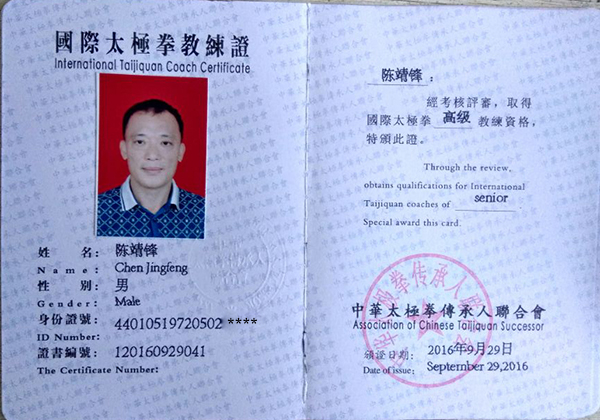 國際太極拳教練證
International Taijiquan Coach Certificate
姓 名: 陈靖锋
Name: Chen Jingfeng
性 别: 男
Gender: Male
身份證號: 44010519720502 ****
ID Number:
證書編號: 120160929041
The Certificate Number:
陈靖锋:
經考核評審,取得
國際太極拳 高级 教練資格,
特頒此證。
Through the review,
obtains qualifications for International
Taijiquan coaches of senior.
Special award this card.
中華太極拳傳承人聯合會
Association of Chinese Taijiquan Successor
頒證日期: 2016年9月29日
Date of issue: September 29,2016